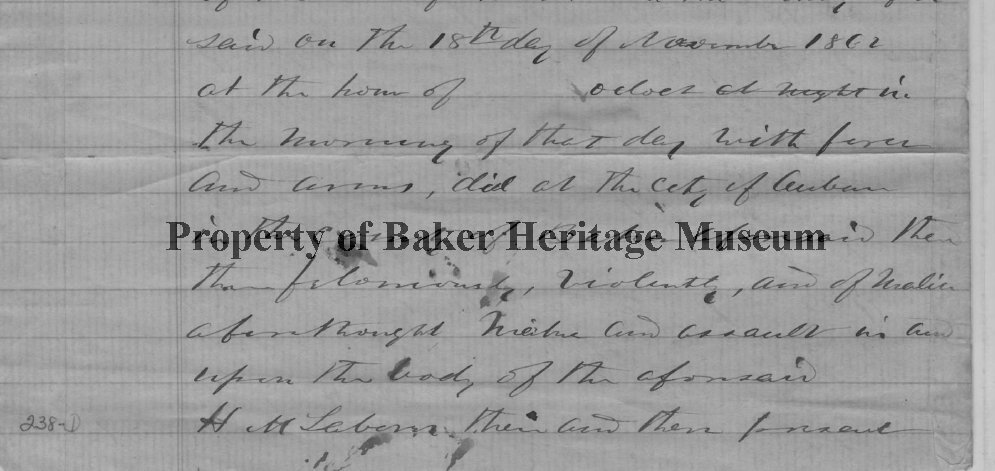 said on the 18th day of November 1862
at the hour of oclock at night in
the morning of that day with force
and arms, did at the City of Auburn
in the County of Baker aforesaid then
Property of Baker Heritage Museum
then feloniously, violently, and of Malice
aforethought Make and assault in and
upon the body of the aforesaid
H M then and there present
238-D